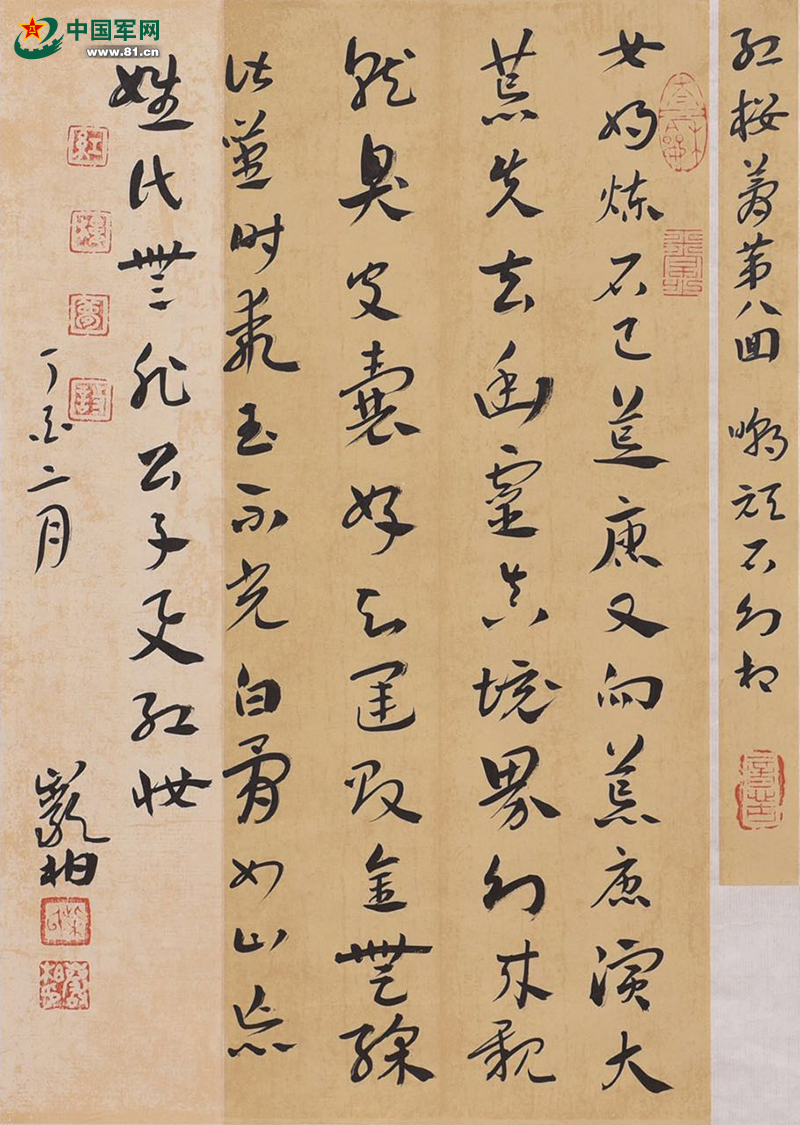 中国军网
www.81.cn
红楼梦第八回 嘲顽石幻相
女娲炼石已荒唐又向荒唐演大
荒失去幽灵真境界幻来亲
就臭皮囊好知运败金無綵
时乖玉不光白骨如山忘
姓氏無非公子与红妆
丁酉二月
红
楼
梦
诗